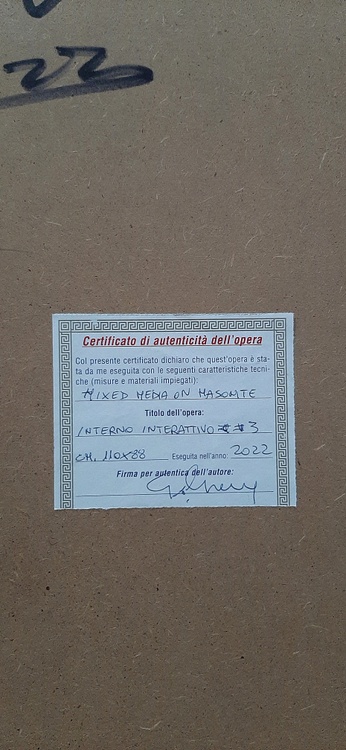 22
Certificato di autenticità dell'opera
Col presente certificato dichiaro che quest'opera è sta-
ta da me eseguita con le seguenti caratteristiche tecni-
che (misure e materiali impiegati):
MIXED MEDIA ON MASONITE
Titolo dell'opera:
INTERNO INTERATTIVO 3
CM. 110X88 Eseguita nell'anno: 2022
Firma per autentica dell'autore: